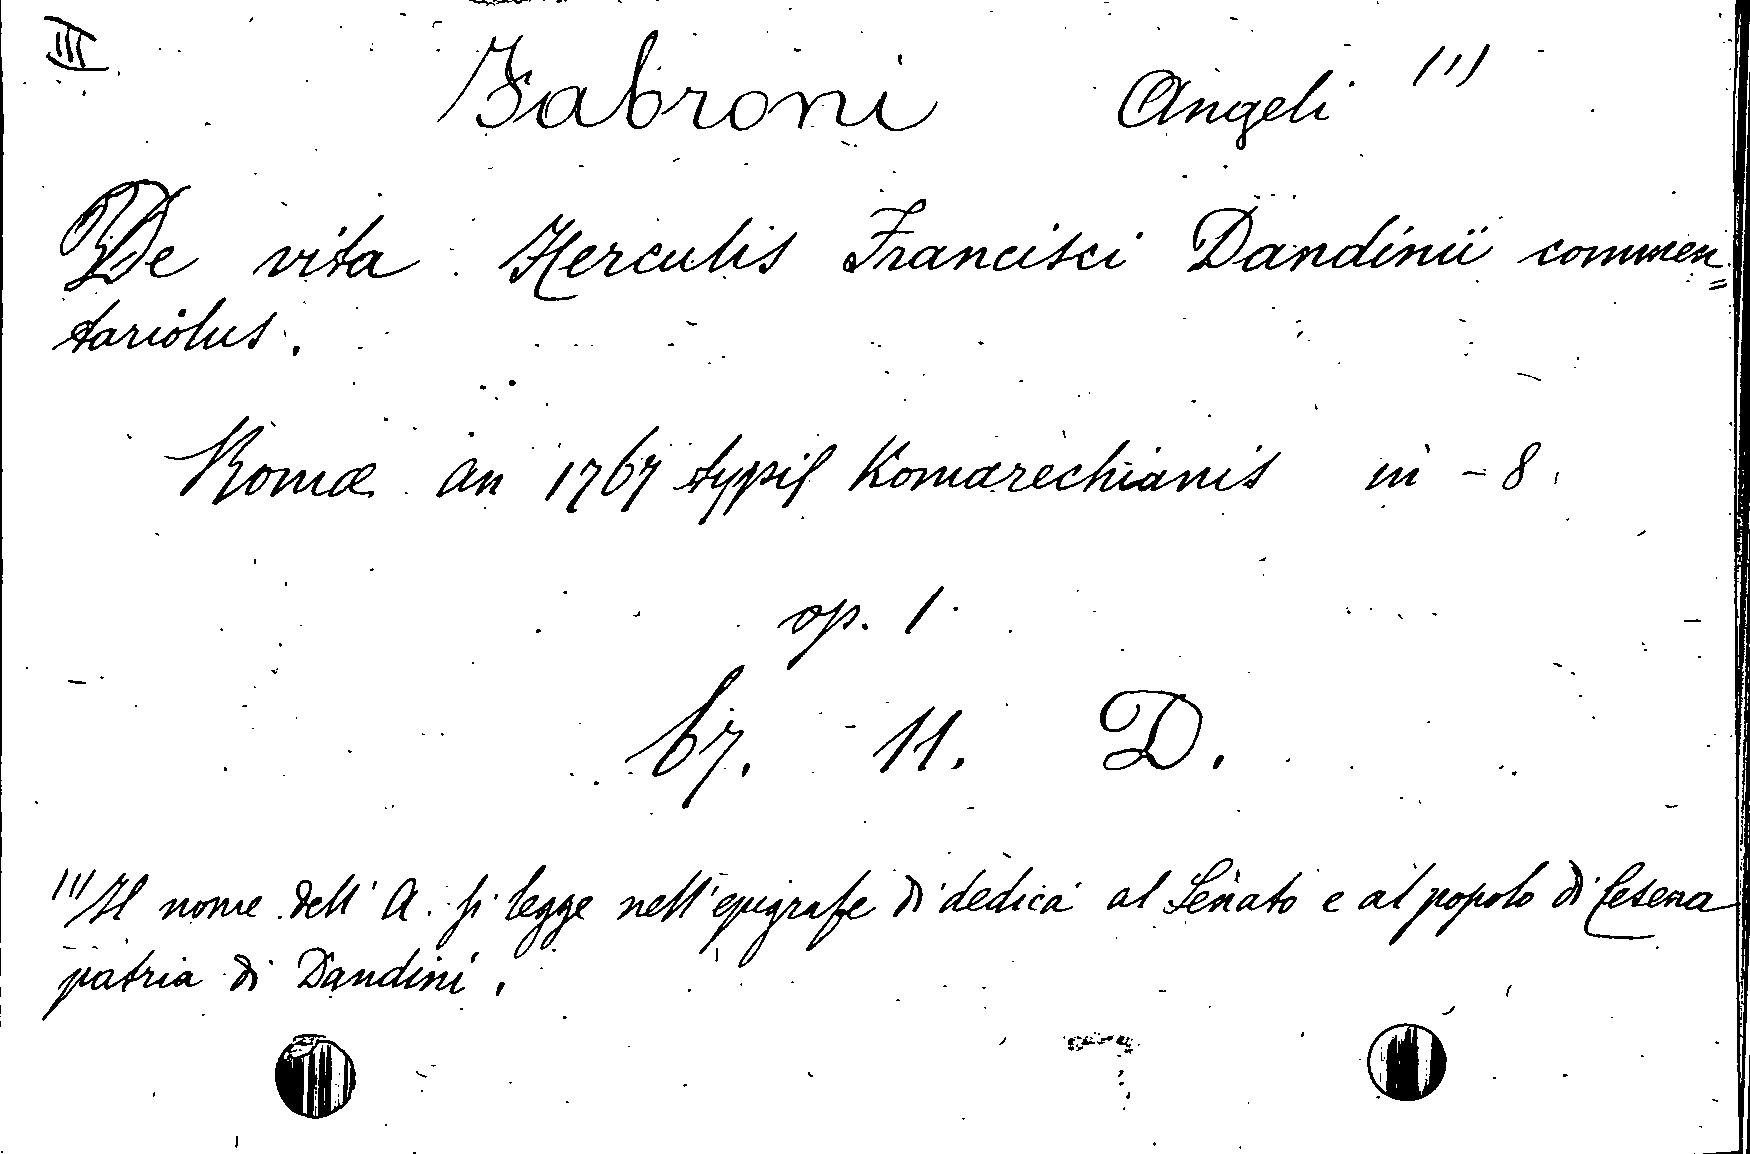 III
Fabroni Angeli (1)
De vita Herculis Francisci Dandinii commen=
tariolus.
Romæ an 1767 typis Komarechianis in - 8
op. 1
67. 11. D.
(1) Il nome dell' A. si legge nell'epigrafe di dedica al Senato e al popolo di Cesena
patria di Dandini.